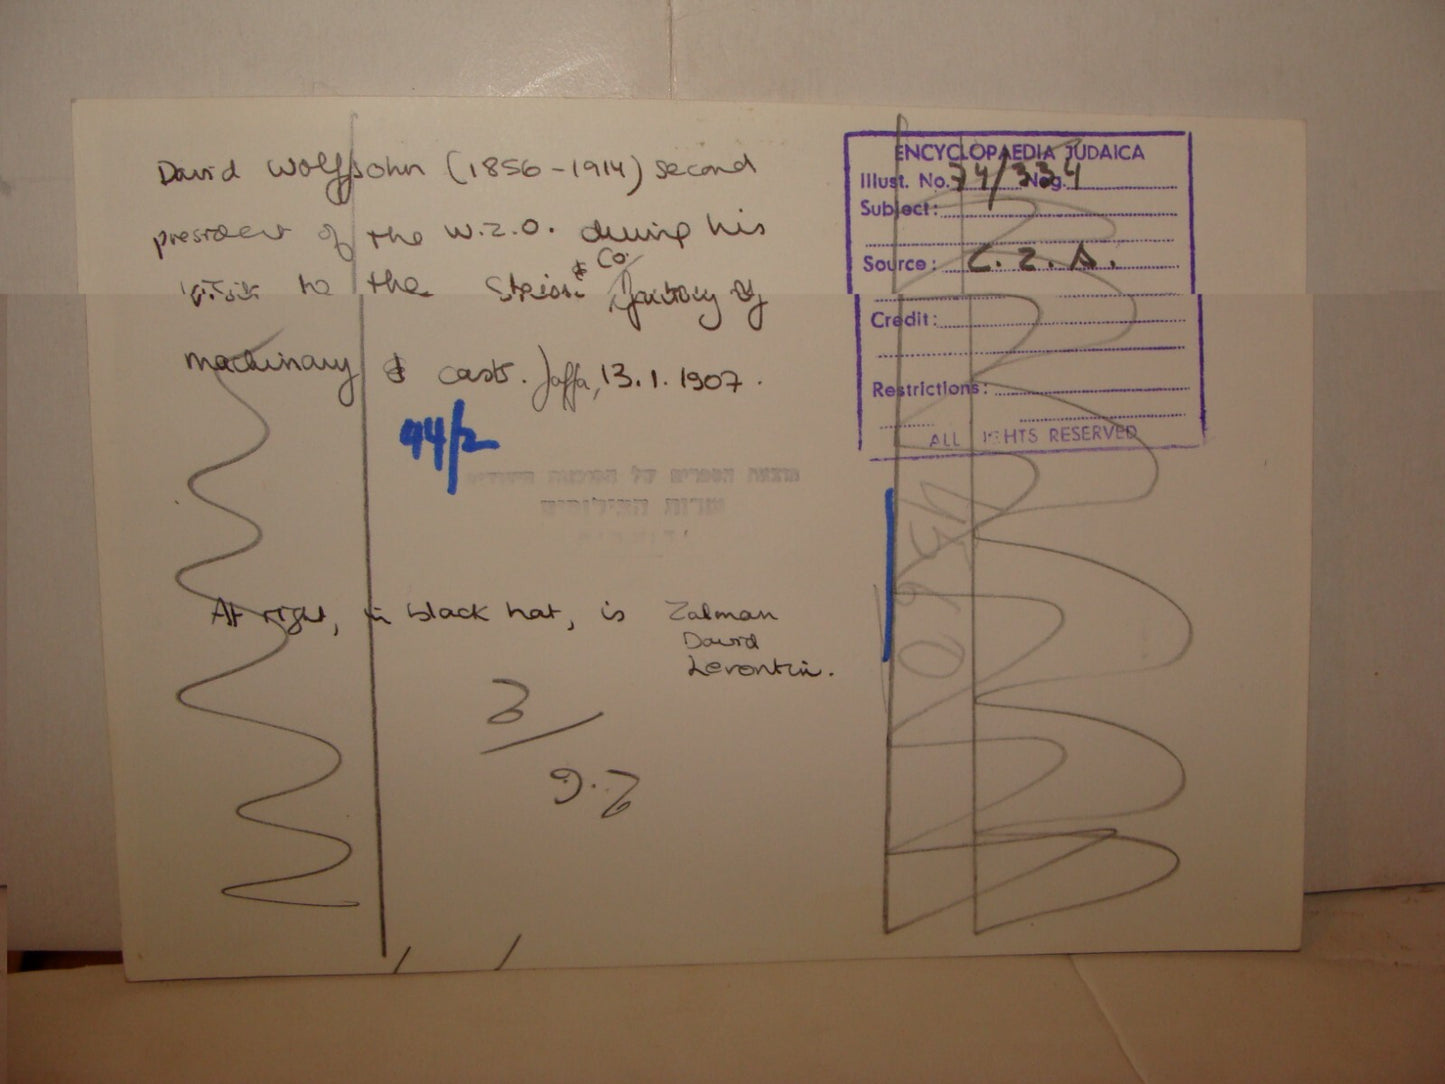 David Wolffsohn (1856-1914) second
president of the W.Z.O. during his
visit to the Stein & Co. factory of
machinary & casts. Jaffa, 13.1.1907.
44/2
At right, in black hat, is Zalman
David
Levontin.
ENCYCLOPAEDIA JUDAICA
Illust. No. 74/334 Neg.
Subject:
Source: C.Z.A.
Credit:
Restrictions:
ALL RIGHTS RESERVED
4560